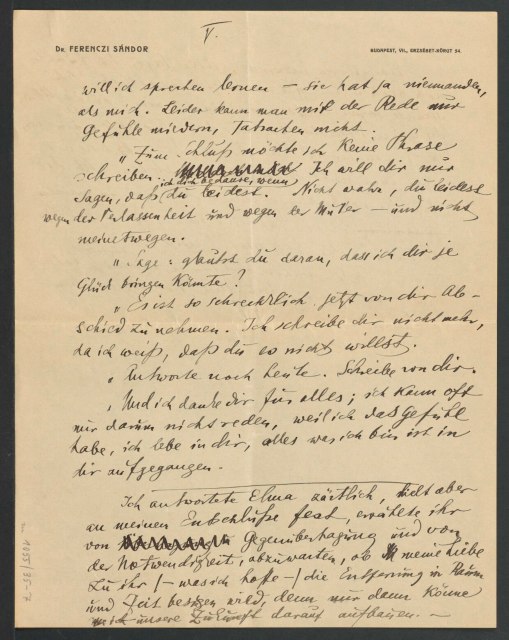 V.
Dr. FERENCZI SÁNDOR
BUDAPEST, VII., ERZSÉBET-KÖRÚT 54.
will ich sprechen lernen — sie hat ja niemanden,
als mich. Leider kann man mit der Rede nur
Gefühle mildern, Tatsachen nicht.
„Zum Schluß möchte ich keine Phrase
schreiben. Ich will dir nur
ich dich bedaure, wenn
sagen, daß du leidest. Nicht wahr, du leidest
wegen der Verlassenheit und wegen der Mutter — und nicht
meinetwegen.
„Sage: glaubst du daran, dass ich dir je
Glück bringen könnte?
„Es ist so schrecklich jetzt von dir Ab-
schied zu nehmen. Ich schreibe dir nicht mehr,
da ich weiß, daß du es nicht willst.
„Antworte noch heute. Schreibe von dir.
„Und ich danke dir für alles; ich kann oft
nur darum nicht reden, weil ich das Gefühl
habe, ich lebe in dir, alles was ich bin ist in
dir aufgegangen.
Ich antwortete Elma zärtlich, hielt aber
an meinem Entschluße fest, erzälte ihr
von Gegenübertragung und von
der Notwendigkeit, abzuwarten, ob meine Liebe
zu ihr (— was ich hoffe —) die Entfernung in Raum
und Zeit besiegen wird, denn nur dann könne
ich unsere Zukunft darauf aufbauen. —